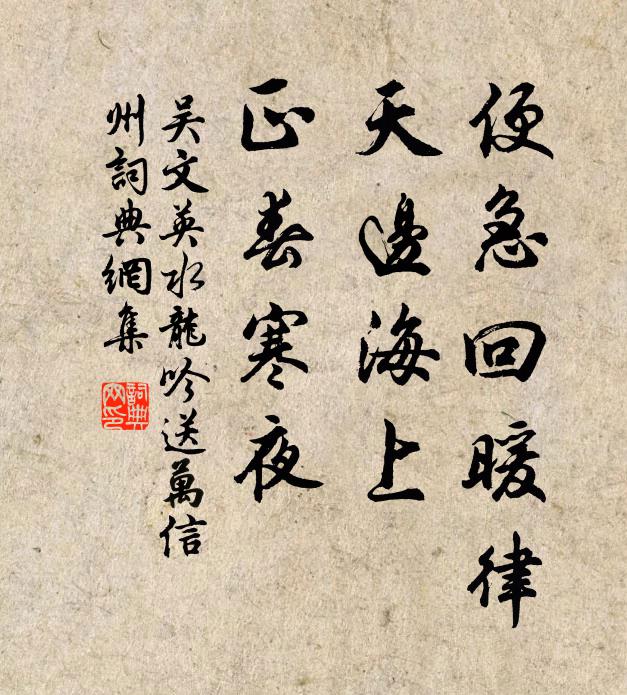 便急回暖律
天邊海上
正春寒夜
吳文英水龍吟送萬信
州詞典網集
詞典网印